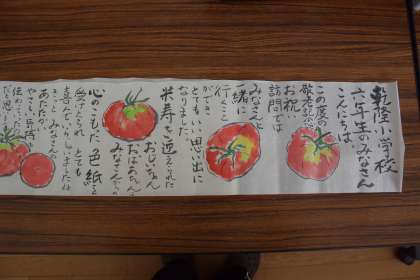 乾隆小学校
六年生のみなさん
こんにちは。
この度の
敬老の日の
お祝い
訪問では
みなさんと
一緒に
行くこと
ができて
とてもいい思い出に
なりました。
米寿を迎えられた
おじいちゃん
おばあちゃん
みなさんの
心のこもった色紙を
受けとられ とても
喜んでいらっしゃいました
きっと みなさんの
あたたか
やさしい
伝わ
だと思